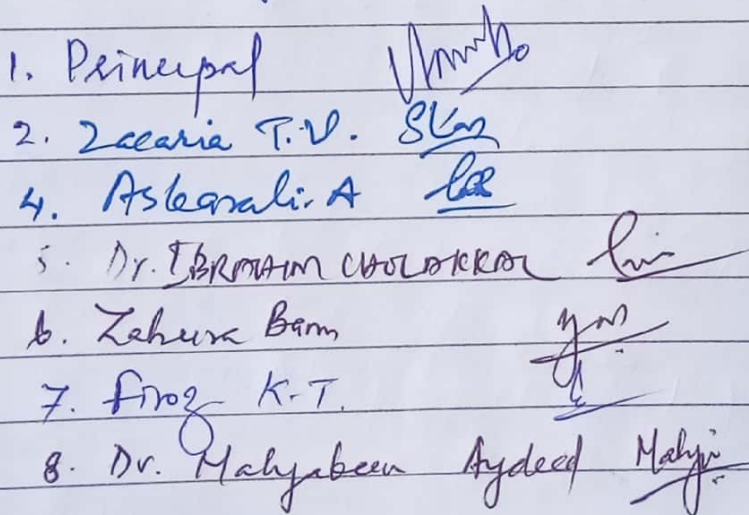 1. Principal
2. Zacaria T.V.
4. Askarali. A
5. Dr. IBRAHIM CHOLAKKAL
6. Zahura Banu
7. Firoz K.T.
8. Dr. Mahjabeen Aydeed